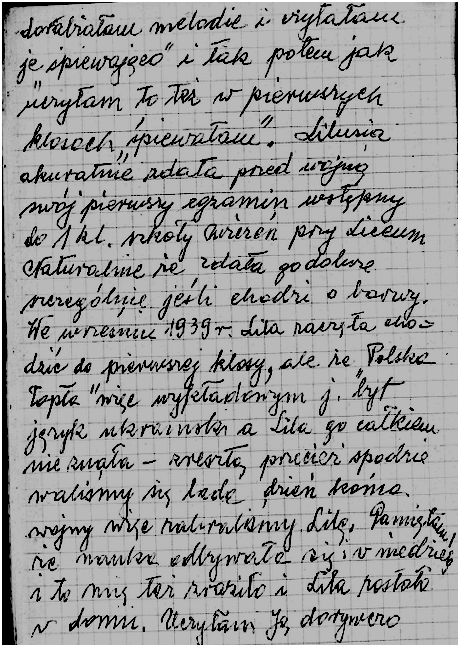 dorabiałam melodie i czytałam
je śpiewająco" i tak potem jak
uczyłam to też w pierwszych
klasach „śpiewałam". Lilusia
akuratnie zdała przed wojną
swój pierwszy egzamin wstępny
do 1 kl. szkoły ćwiczeń przy Liceum
Naturalnie że zdała go dobrze
szczególnie jeśli chodzi o barwy.
We wrześniu 1939 r. Lila zaczęła cho-
dzić do pierwszej klasy, ale że Polska
"padła" więc wykładowym j. był
język ukraiński a Lila go całkiem
nie znała – zresztą przecież spodzie
waliśmy się lada dzień końca
wojny więc zabraliśmy Lilę. Pamiętam
że nauka odbywała się i w niedzielę
i to mię też zraziło i Lila została
w domu. Uczyłam Ją dorywczo